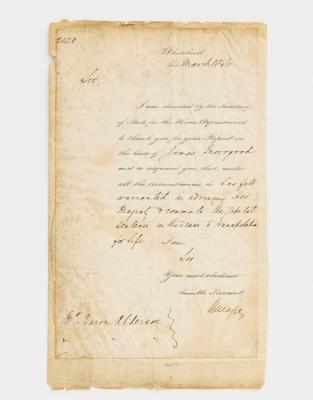 Whitehall
4 March 1856
Sir,
I am directed by the Secretary
of State for the Home Department
to thank you for your Report on
the case of James Thorogood
and to acquaint you, that under
all the circumstances, he has felt
warranted in advising Her
Majesty to commute the Capital
Sentence in this case to Transportation
for Life
I am,
Sir
Your most obedient
humble Servant,
Mr. Baron Alderson